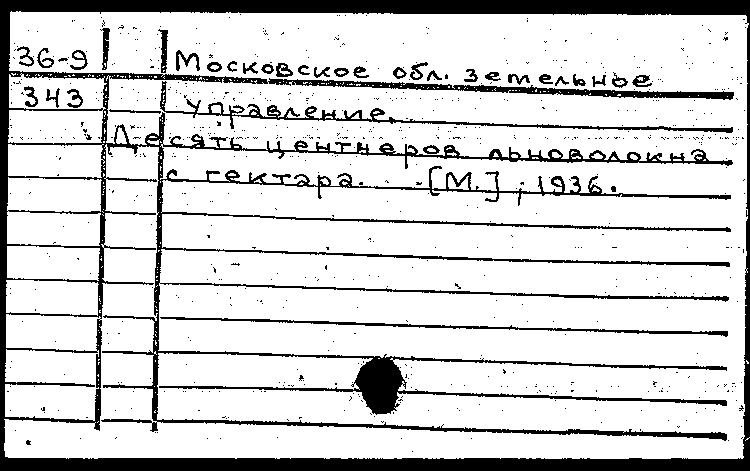 36-9 Московское обл. земельное
343 управление.
Десять центнеров льноволокна
с гектара. -[М.], 1936.